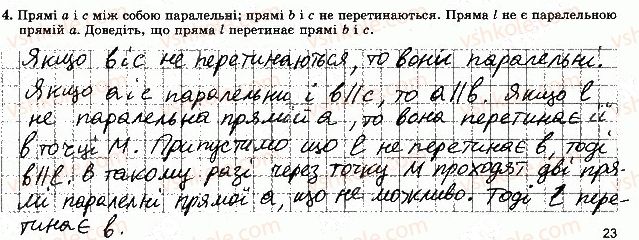 4. Прямі a і c між собою паралельні; прямі b і c не перетинаються. Пряма l не є паралельною
прямій a. Доведіть, що пряма l перетинає прямі b і c.
Якщо в і с не перетинаються, то вони паралельні.
Якщо a і c паралельни і b||c, то a||b. Якщо l
не паралельна прямій a, то вона перетинає її
в точці M. Припустимо що l не перетинає b, тоді
b||l. В такому разі через точку M проходят дві пря-
ми паралелні прямої a, що не можливо. Тоді l пере-
тинає b.
23